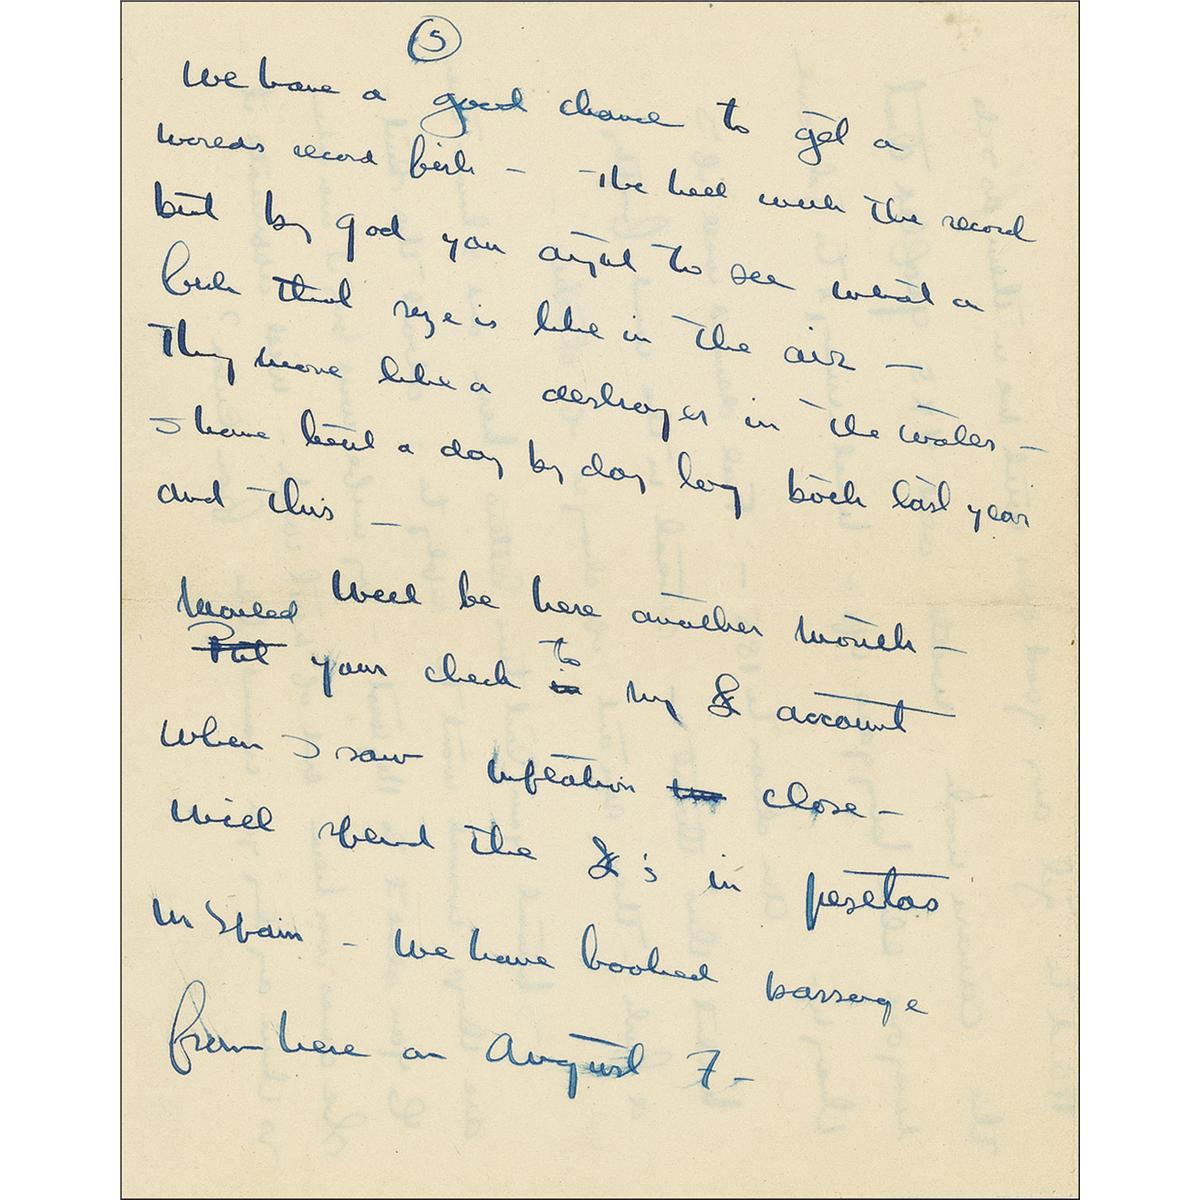 (5)
We have a good chance to get a
worlds record fish - The hell with the record
but by god you ought to see what a
fish that size is like in the air -
They move like a destroyer in the water -
I have kept a day by day log both last year
and this -
Will be here another month -
Mailed
Put your check in to my £ account
when I saw inflation close -
Will spend the £'s in pesetas
in Spain - We have booked passage
from here on August 7 -